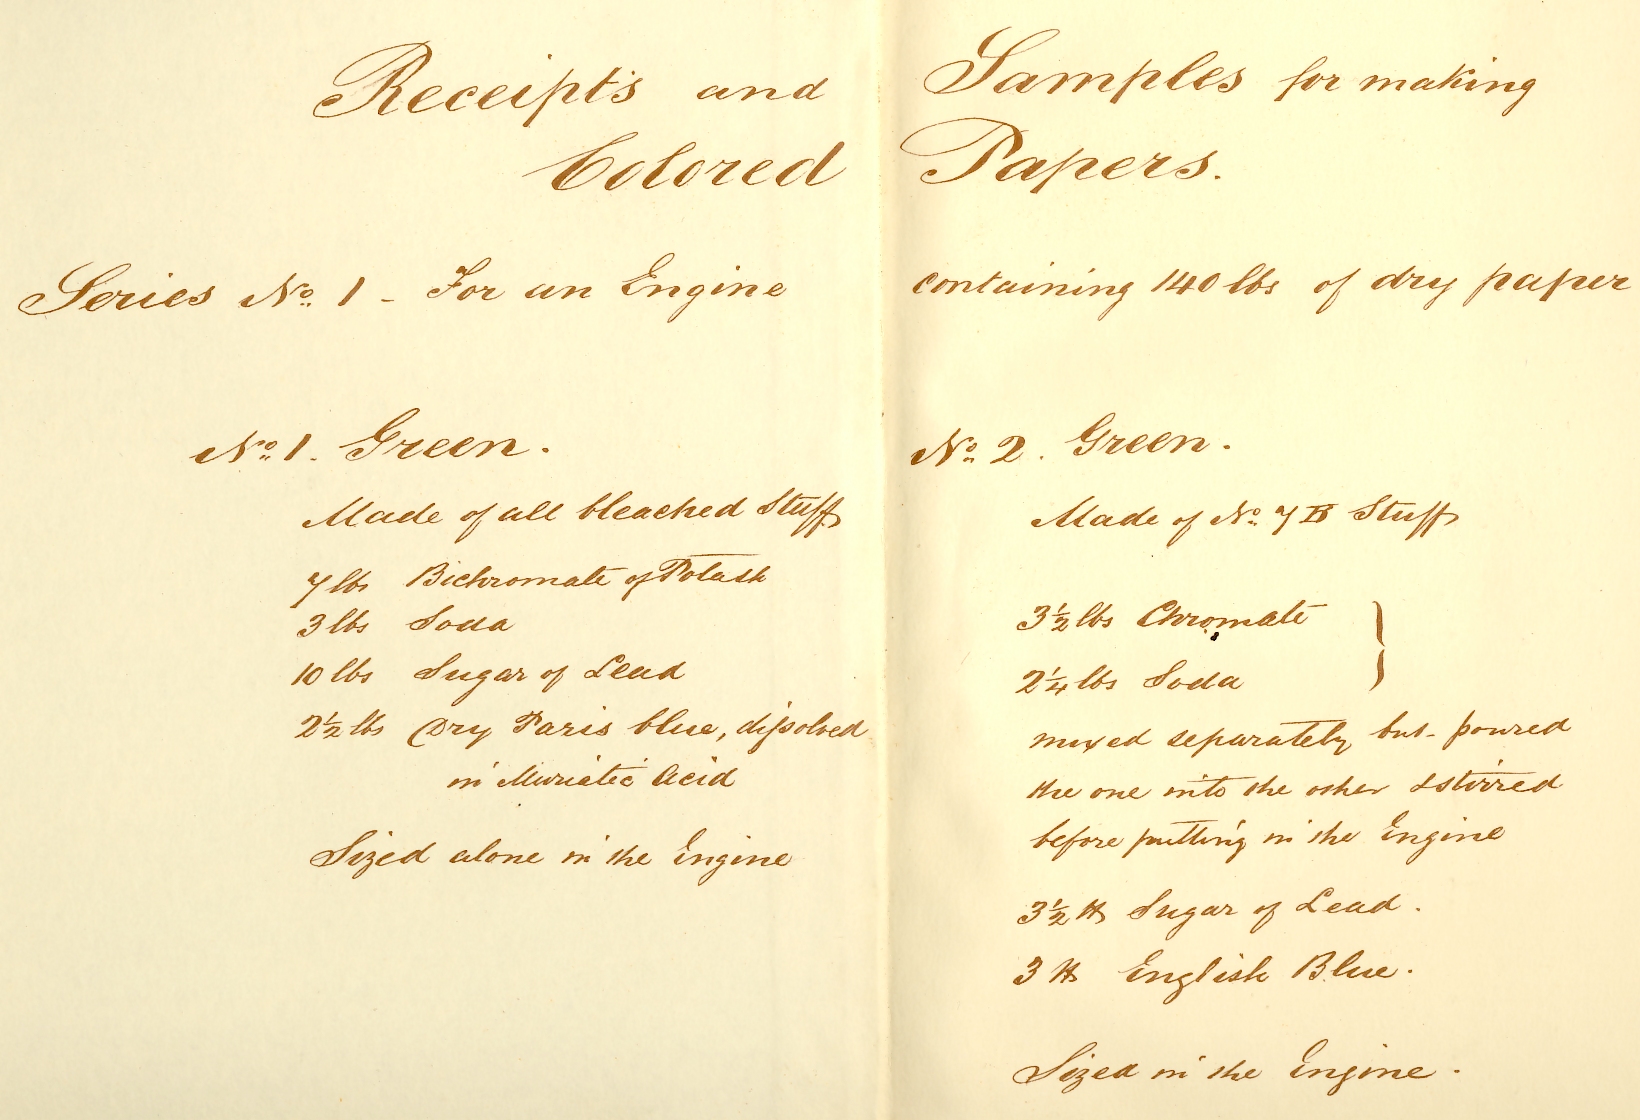 Receipts and Samples for making
Colored Papers.
Series No. 1 - For an Engine containing 140 lbs of dry paper
No. 1. Green.
Made of all bleached Stuff
7 lbs Bichromate of Potash
3 lbs Soda
10 lbs Sugar of Lead
2½ lbs Dry Paris blue, dissolved
in Muriatic Acid
Sized alone in the Engine
No. 2. Green.
Made of No. 7 B Stuff
3½ lbs Chromate }
2¼ lbs Soda
mixed separately but poured
the one into the other & stirred
before putting in the Engine
3½ ℔s Sugar of Lead.
3 ℔s English Blue.
Sized in the Engine.